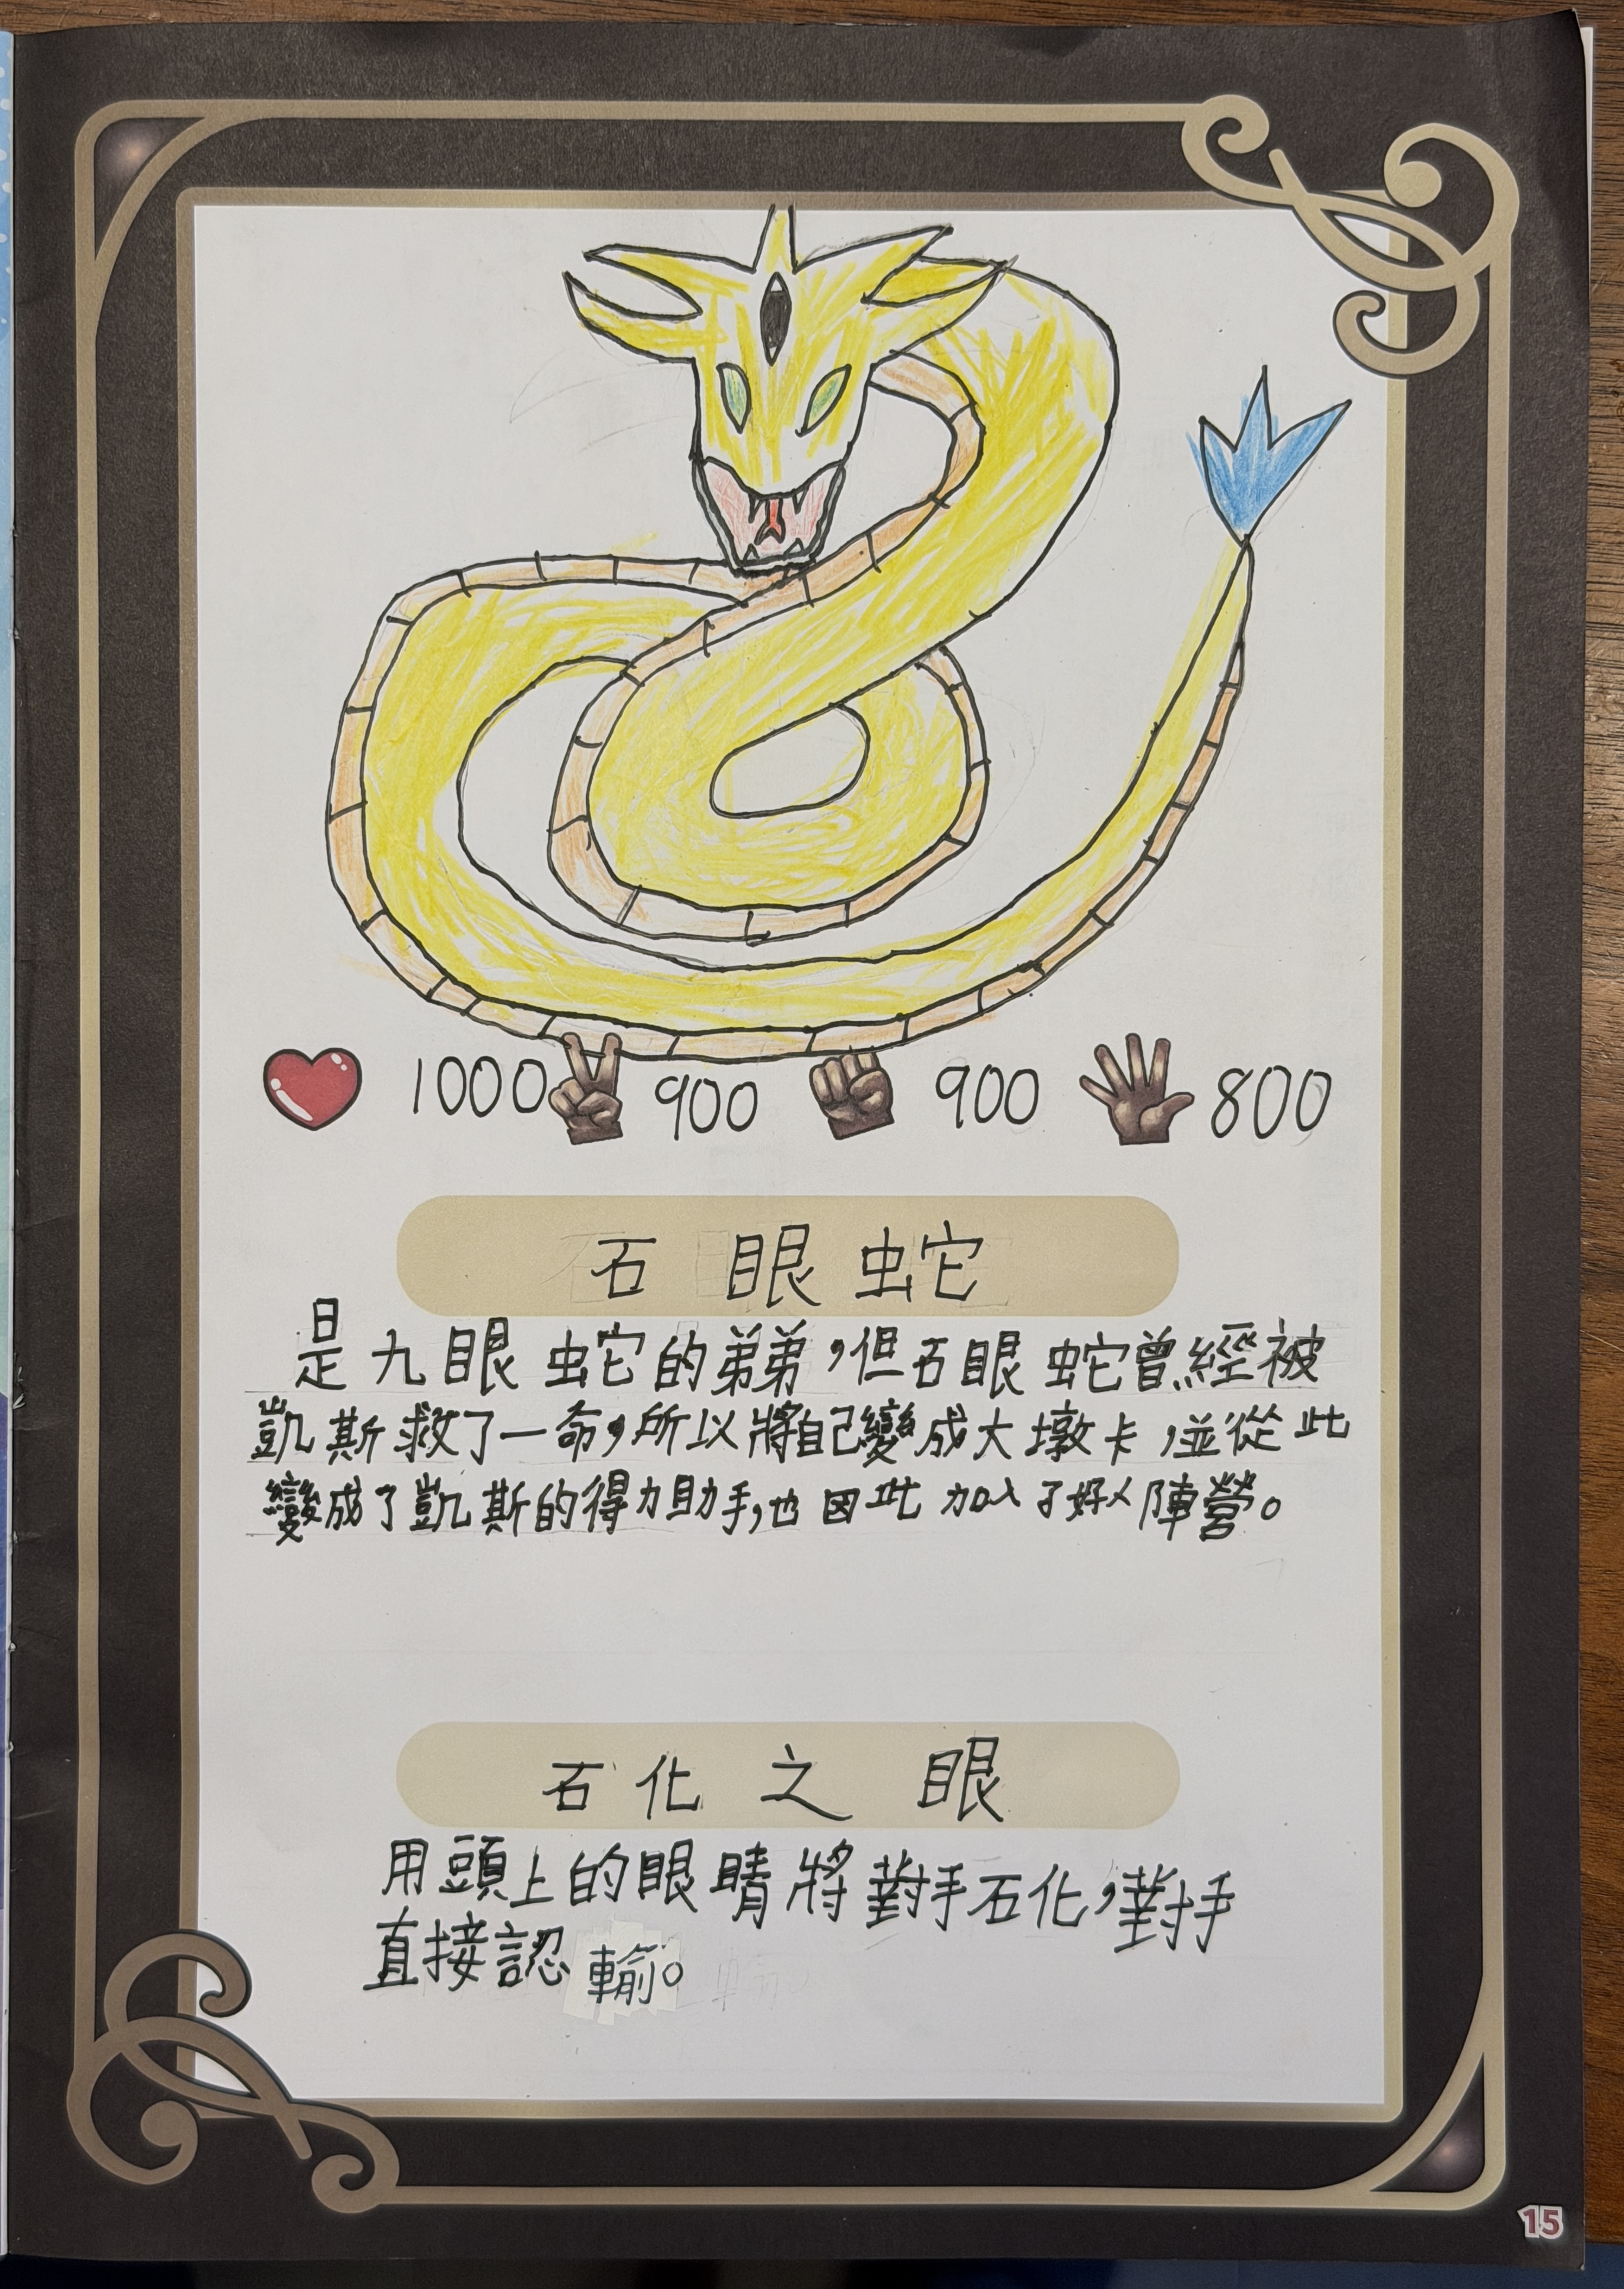 1000 900 900 800
石眼蛇
是九眼蛇的弟弟,但石眼蛇曾經被
凱斯救了一命,所以將自己變成大墩卡,並從此
變成了凱斯的得力助手,也因此加入了好人陣營。
石化之眼
用頭上的眼睛將對手石化,對手
直接認輸。
15